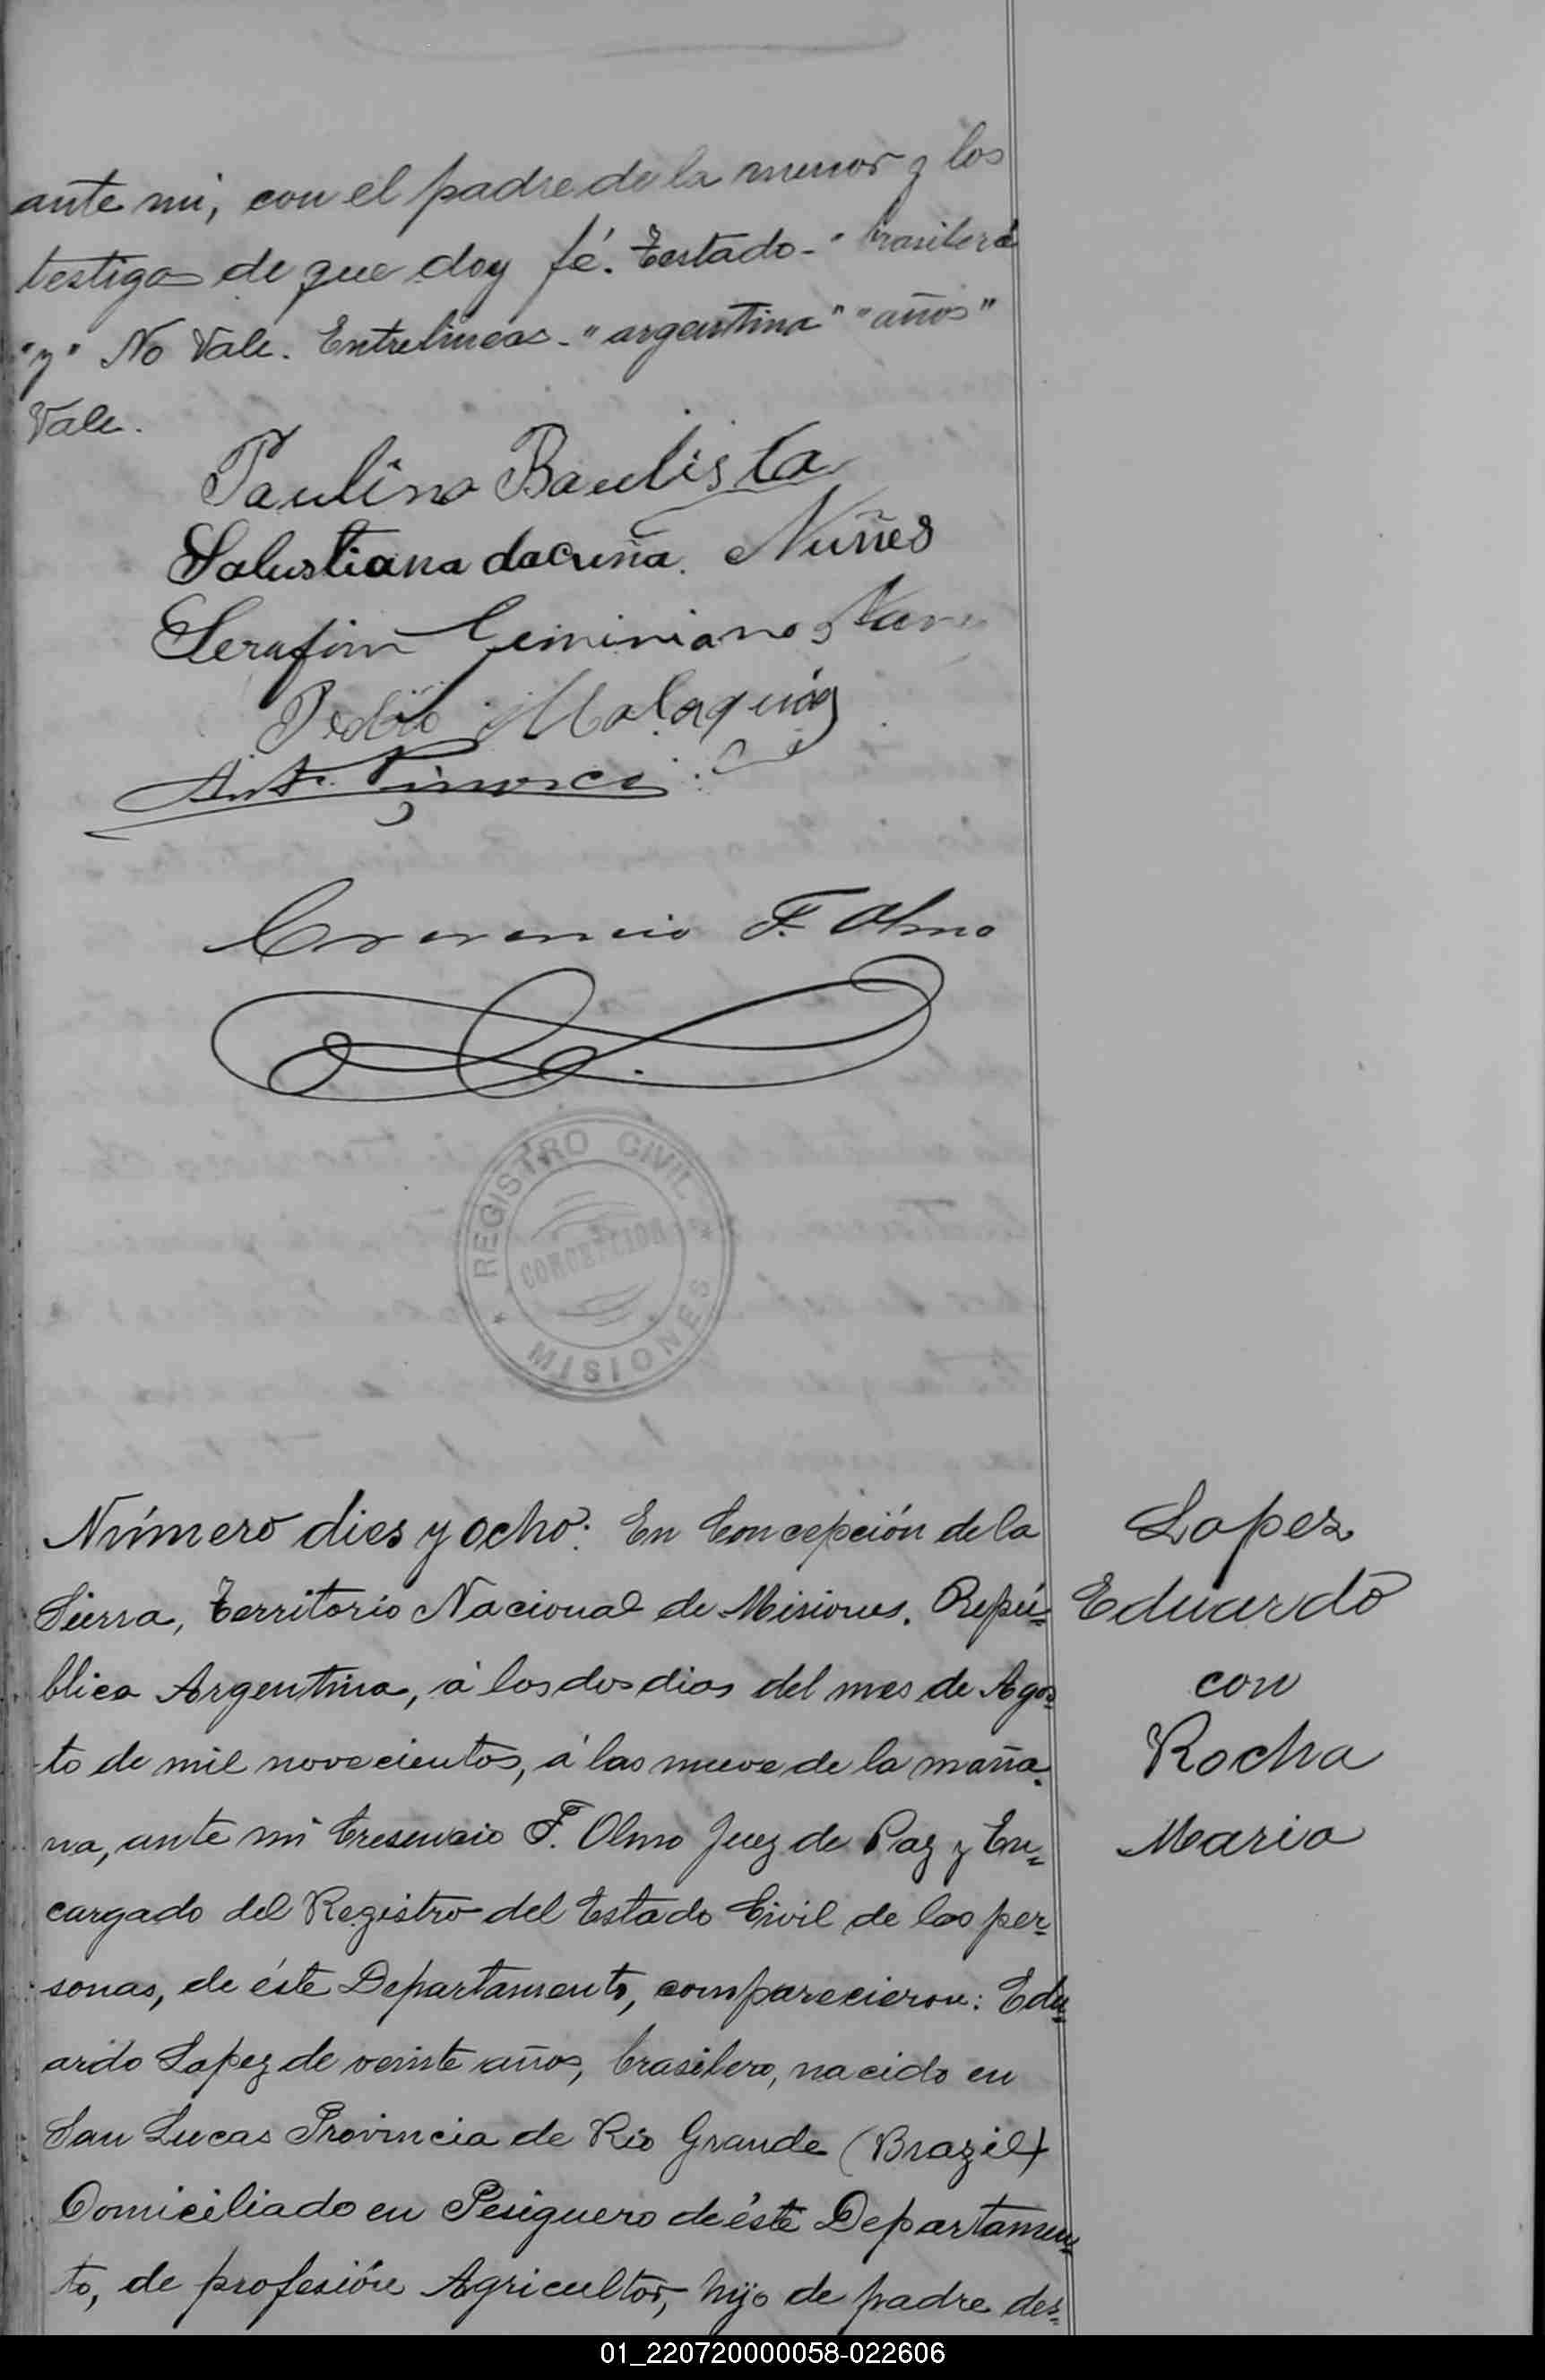 ante mi, con el padre de la menor y los
testigos de que doy fé. Testado-"brasilera"
"y" No Vale. Entrelineas-"argentina" "años"
Vale.
Paulino Bautista
Salustiana dacuña. Nuñes
Serafim Geminiano
Pedro Malaquias
Crecencio F. Olmo
REGISTRO CIVIL
CONCEPCION
MISIONES
Número dies y ocho: En Concepción de la
Sierra, Territorio Nacional de Misiones. Repú=
blica Argentina, á los dos dias del mes de Agos=
to de mil novecientos, á las nueve de la maña=
na, ante mi Cresencio F. Olmo Juez de Paz y En=
cargado del Registro del Estado Civil de las per=
sonas, de éste Departamento, comparecieron: Edu=
ardo Lopez de veinte años, brasilero, nacido en
San Lucas Provincia de Rio Grande (Brazil)
Domiciliado en Pesiguero de éste Departamen=
to, de profesión Agricultor, hijo de padre des=
Lopez
Eduardo
con
Rocha
Maria
01_220720000058-022606